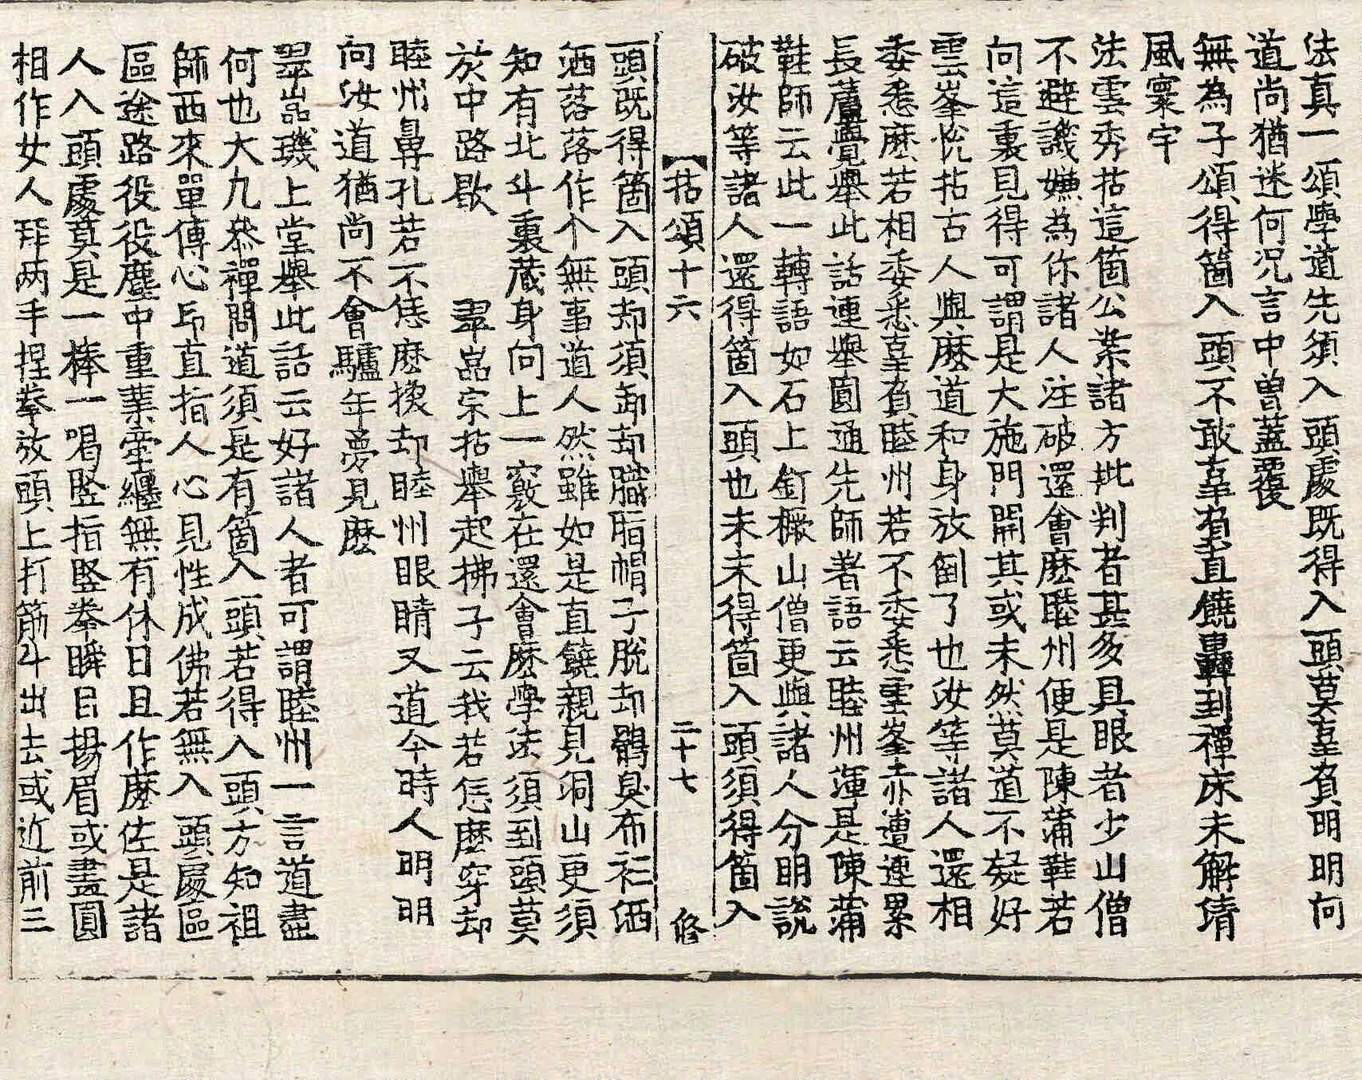 法真一頌學道先須入頭處既得入頭莫辜負明明向
道尚猶迷何况言中曾蓋覆
無為子頌得箇入頭不敢辜負直饒轟到禪床未解清
風寰宇
法雲秀拈這箇公案諸方批判者甚多具眼者少山僧
不避譏嫌為你諸人注破還會麽睦州便是陳蒲鞋若
向這裏見得可謂是大施門開其或未然莫道不疑好
雲峯恱拈古人與麽道和身放倒了也汝等諸人還相
委悉麽若相委悉辜負睦州若不委悉雲峯亦遭連累
長蘆覺舉此話連舉圓通先師著語云睦州渾是陳蒲
鞋師云此一轉語如石上釘橛山僧更與諸人分明說
破汝等諸人還得箇入頭也未未得箇入頭須得箇入
【拈頌十六 二十七 修
頭既得箇入頭却須卸却膱脂帽子脫却鶻臭布衫洒
洒落落作个無事道人然雖如是直饒親見洞山更須
知有北斗裏藏身向上一竅在還會麽學法須到頭莫
於中路歇 翠嵓宗拈舉起拂子云我若恁麽穿却
睦州鼻孔若不恁麽換却睦州眼睛又道今時人明明
向汝道猶尚不會驢年夢見麽
翠嵓璣上堂舉此話云好諸人者可謂睦州一言道盡
何也大凡叅禪問道須是有箇入頭若得入頭方知祖
師西來單傳心印直指人心見性成佛若無入頭處區
區途路役役塵中重業牽纏無有休日且作麽佐是諸
人入頭處莫是一棒一喝竪指竪拳瞬目揚眉或畫圓
相作女人拜兩手捏拳放頭上打筋斗出去或近前三